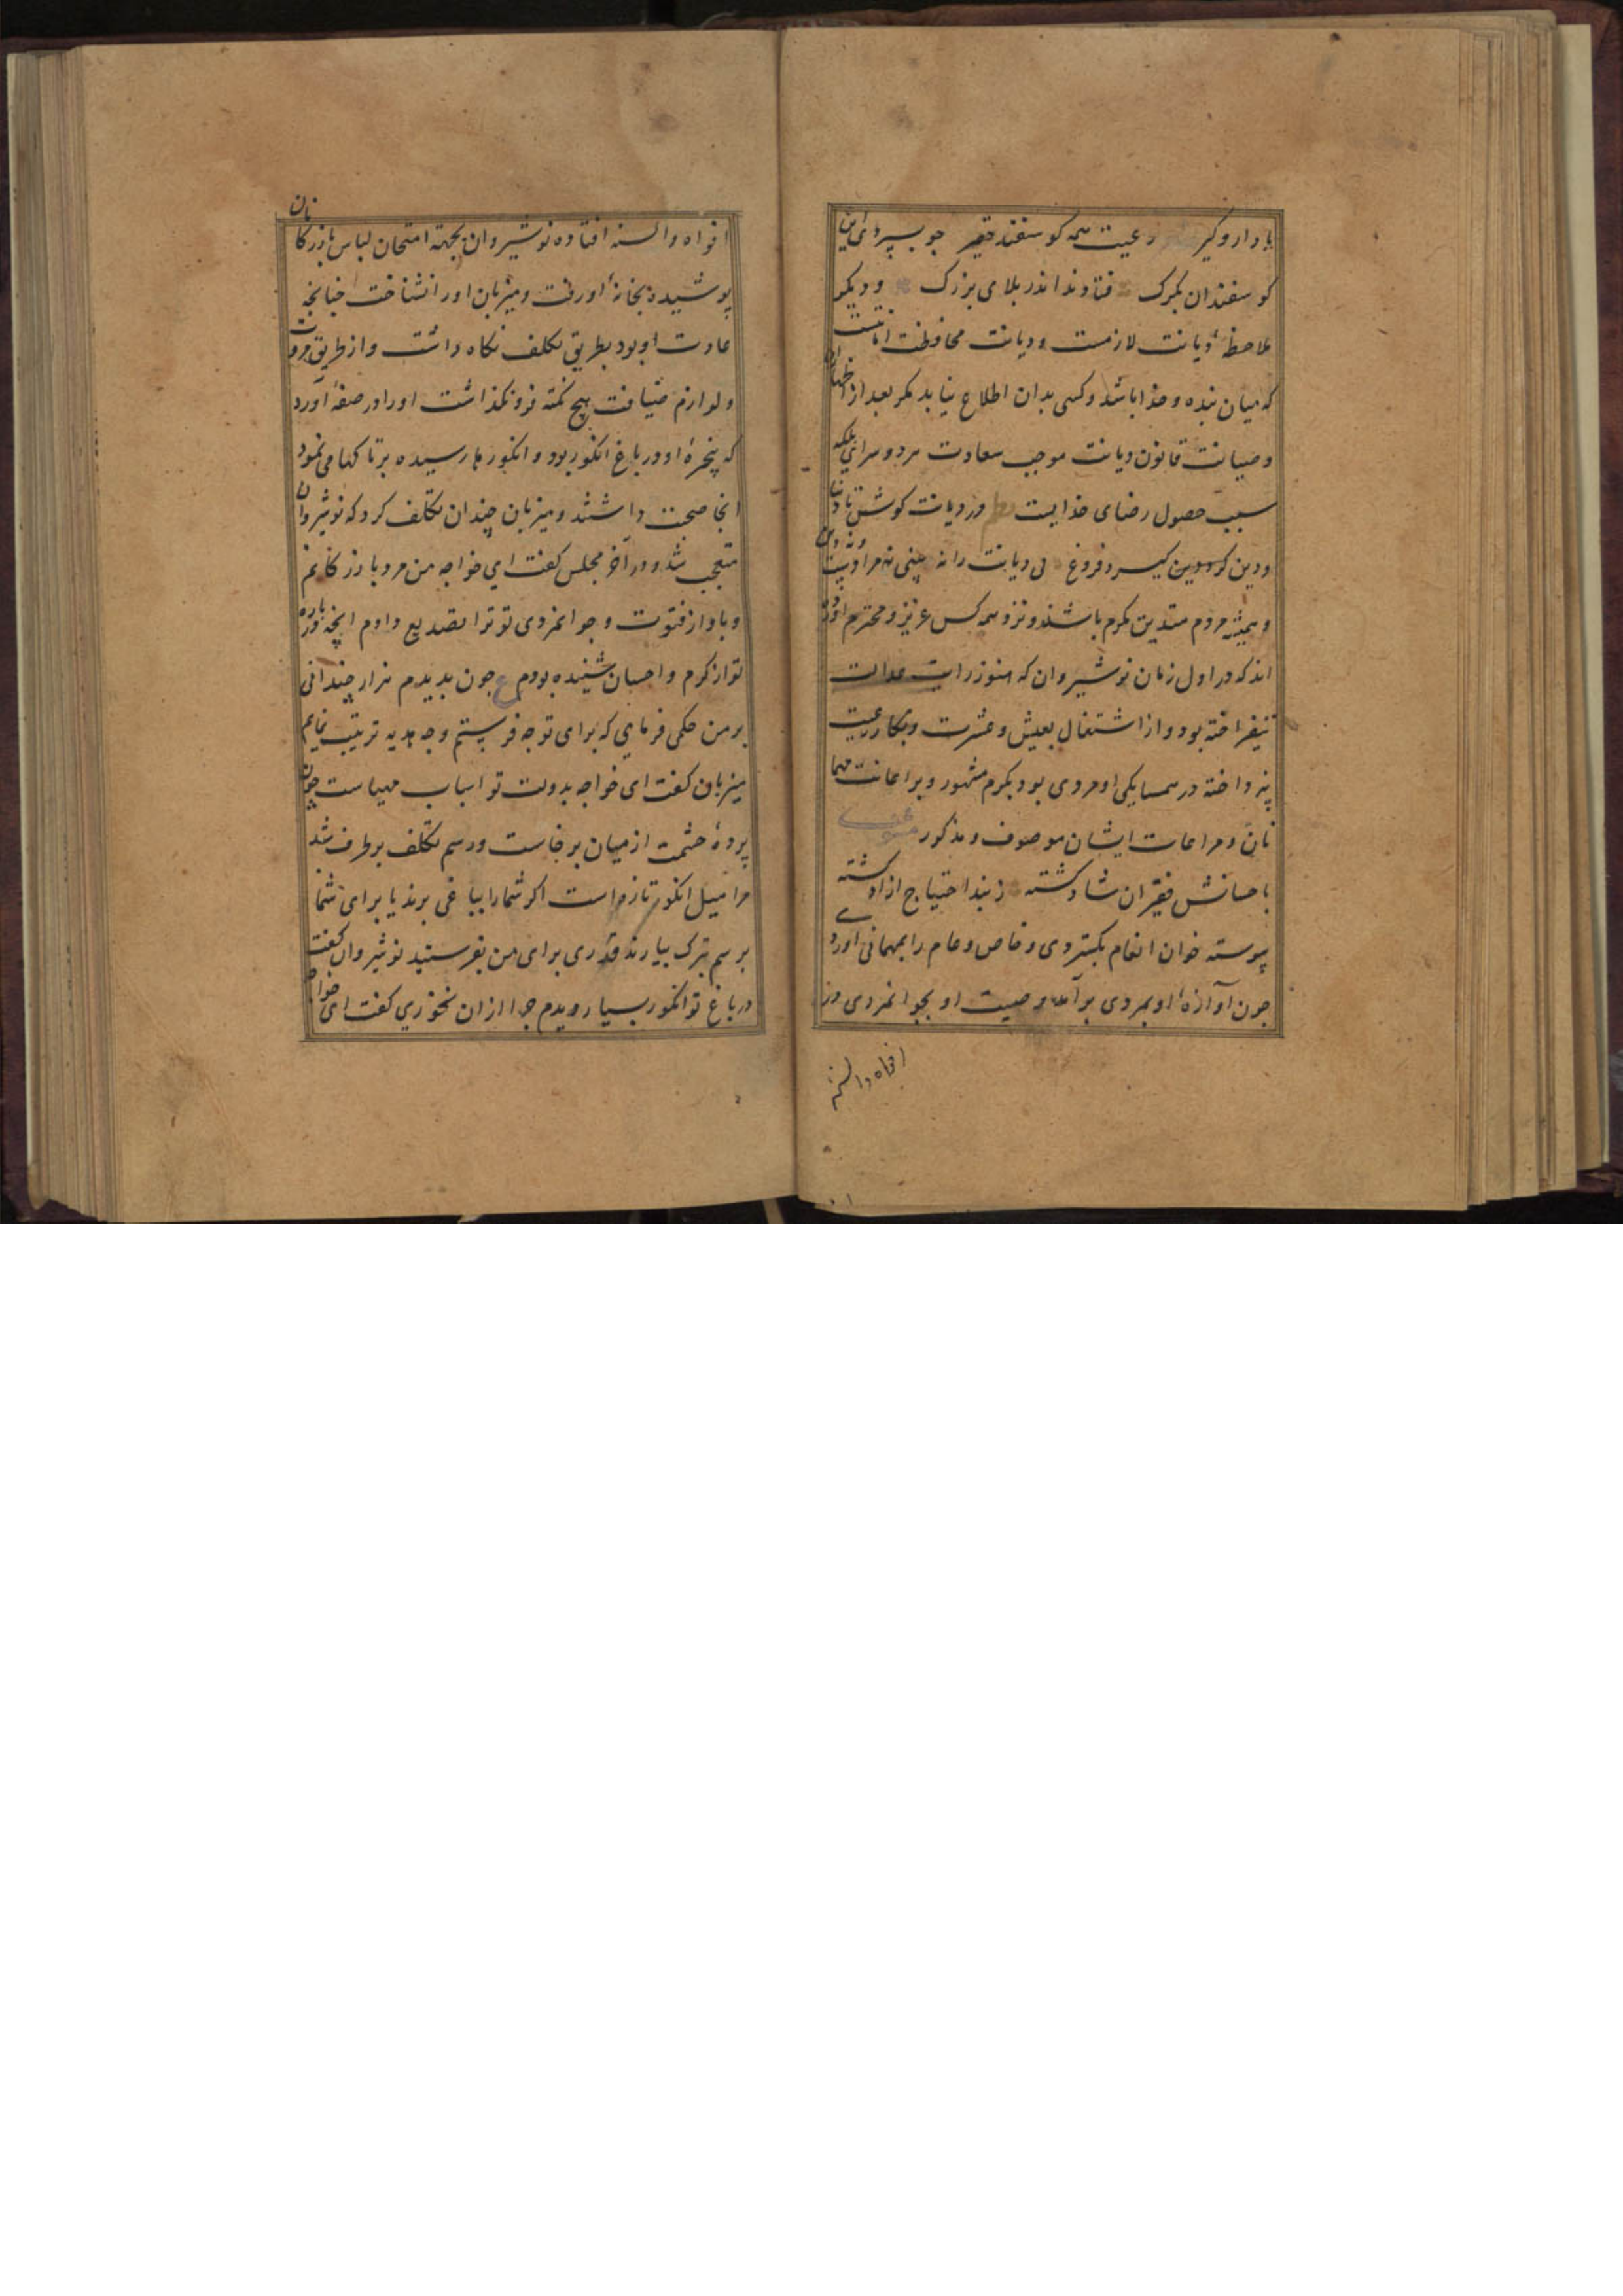 با دار و کیر رعیت همه کوسفند حقیر جو بسپردی این
کوسفندان بکرک فتادند اندر بلای بزرک و دیکر
ملاحظهٔ دیانت لازمست و دیانت محافظت امانتست
که میان بنده و خدا باشد و کسی بدان اطلاع نیابد مکر بعد از اظهار
و صیانت قانون دیانت موجب سعادت هر دو سرای بلکه
سبب حصول رضای خدایست در دیانت کوش تا دنیا
و دین کیرد فروغ بی دیانت را نه بینی نه مراد
و همیشه مردم متدین مکرم باشند و نزد همه کس عزیز و محترم آورده
اند که در اول زمان نوشیروان که هنوز رایت عدالت
نیفراخته بود و از اشتغال بعیش و عشرت و بکار رعیت
نپرداخته در همسایکی او مردی بود بکرم مشهور و بر اعانت مهما
نان و مراعات ایشان موصوف و مذکور
باحسانش فقیران شاد کشته ز بند احتیاج ازاد کشته
پیوسته خوان انعام بکستردی و خاص و عام را بمهمانی اوردی
جون آوازهٔ او بمردی بر آمد و صیت او بجوانمردی در
افواه والسنه
افواه والسنه افتاده نوشیروان بجهة امتحان لباس بازرکانان
پوشیده بخانهٔ او رفت و میزبان او را نشناخت جنانجه
عادت او بود بطریق تکلف نکاه داشت و از طریق مروت
و لوازم ضیافت هیج نکته فرو نکذاشت او را در صفهٔ آورد
که پنجرهٔ او در باغ انکور بود و انکورها رسیده بر تاکها می نمود
انجا صحبت داشتند و میزبان چندان تکلف کرد که نوشیروان
متعجب شد و در آخر مجلس کفت ای خواجه من مرد بازرکانم
و باواز فتوت و جوانمردی تو ترا تصدیع دادم انچه درباره
تو از کرم و احسان شنیده بودم ع جون بدیدم هزار چندانی
بر من حکمی فرمای که برای تو جه فرستم و جه هدیه ترتیب نمایم
میزبان کفت ای خواجه بدولت تو اسباب مهیاست چون
پردهٔ حشمت از میان برخاست و رسم تکلف برطرف شد
مرا میل انکور تازه است اکر شما را بباغی برند یا برای شما
برسم تبرک بیارند قدری برای من بفرستید نوشیروان کفت
در باغ تو انکور بسیار دیدم جرا از ان نخوری کفت ای خواجه